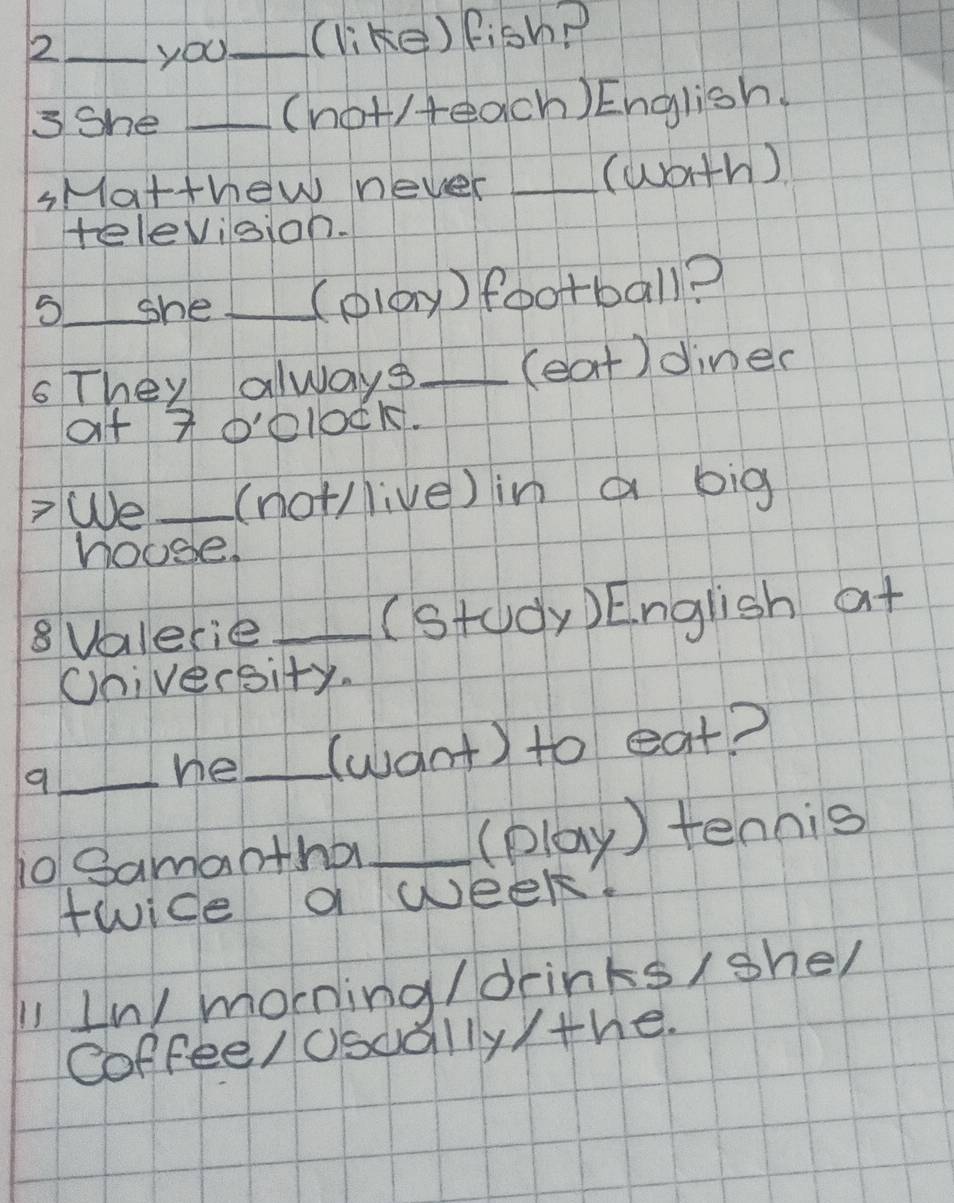 2 ___ you ___ (like) fish?
3 She ___ (not/teach) English.
4 Matthew never ___ (wath)
television.
5 ___ she ___ (play) football?
6 They always ___ (eat) diner
at 7 o'clock.
7 We ___ (not/live) in a big
house.
8 Valerie ___ (study) English at
University.
9 ___ he ___ (want) to eat?
10 Samantha ___ (play) tennis
twice a week.
11 In/ morning/drinks/she/
Coffee/Usually/the.